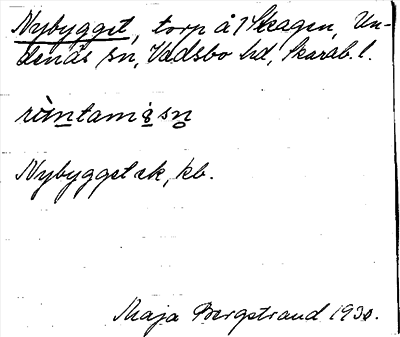 Nybygget, torp å Skagen, Un-
denäs sn, Vadsbo hd, Skarab. l.
Nybygget ek, kb.
Maja Bergstrand 1930.